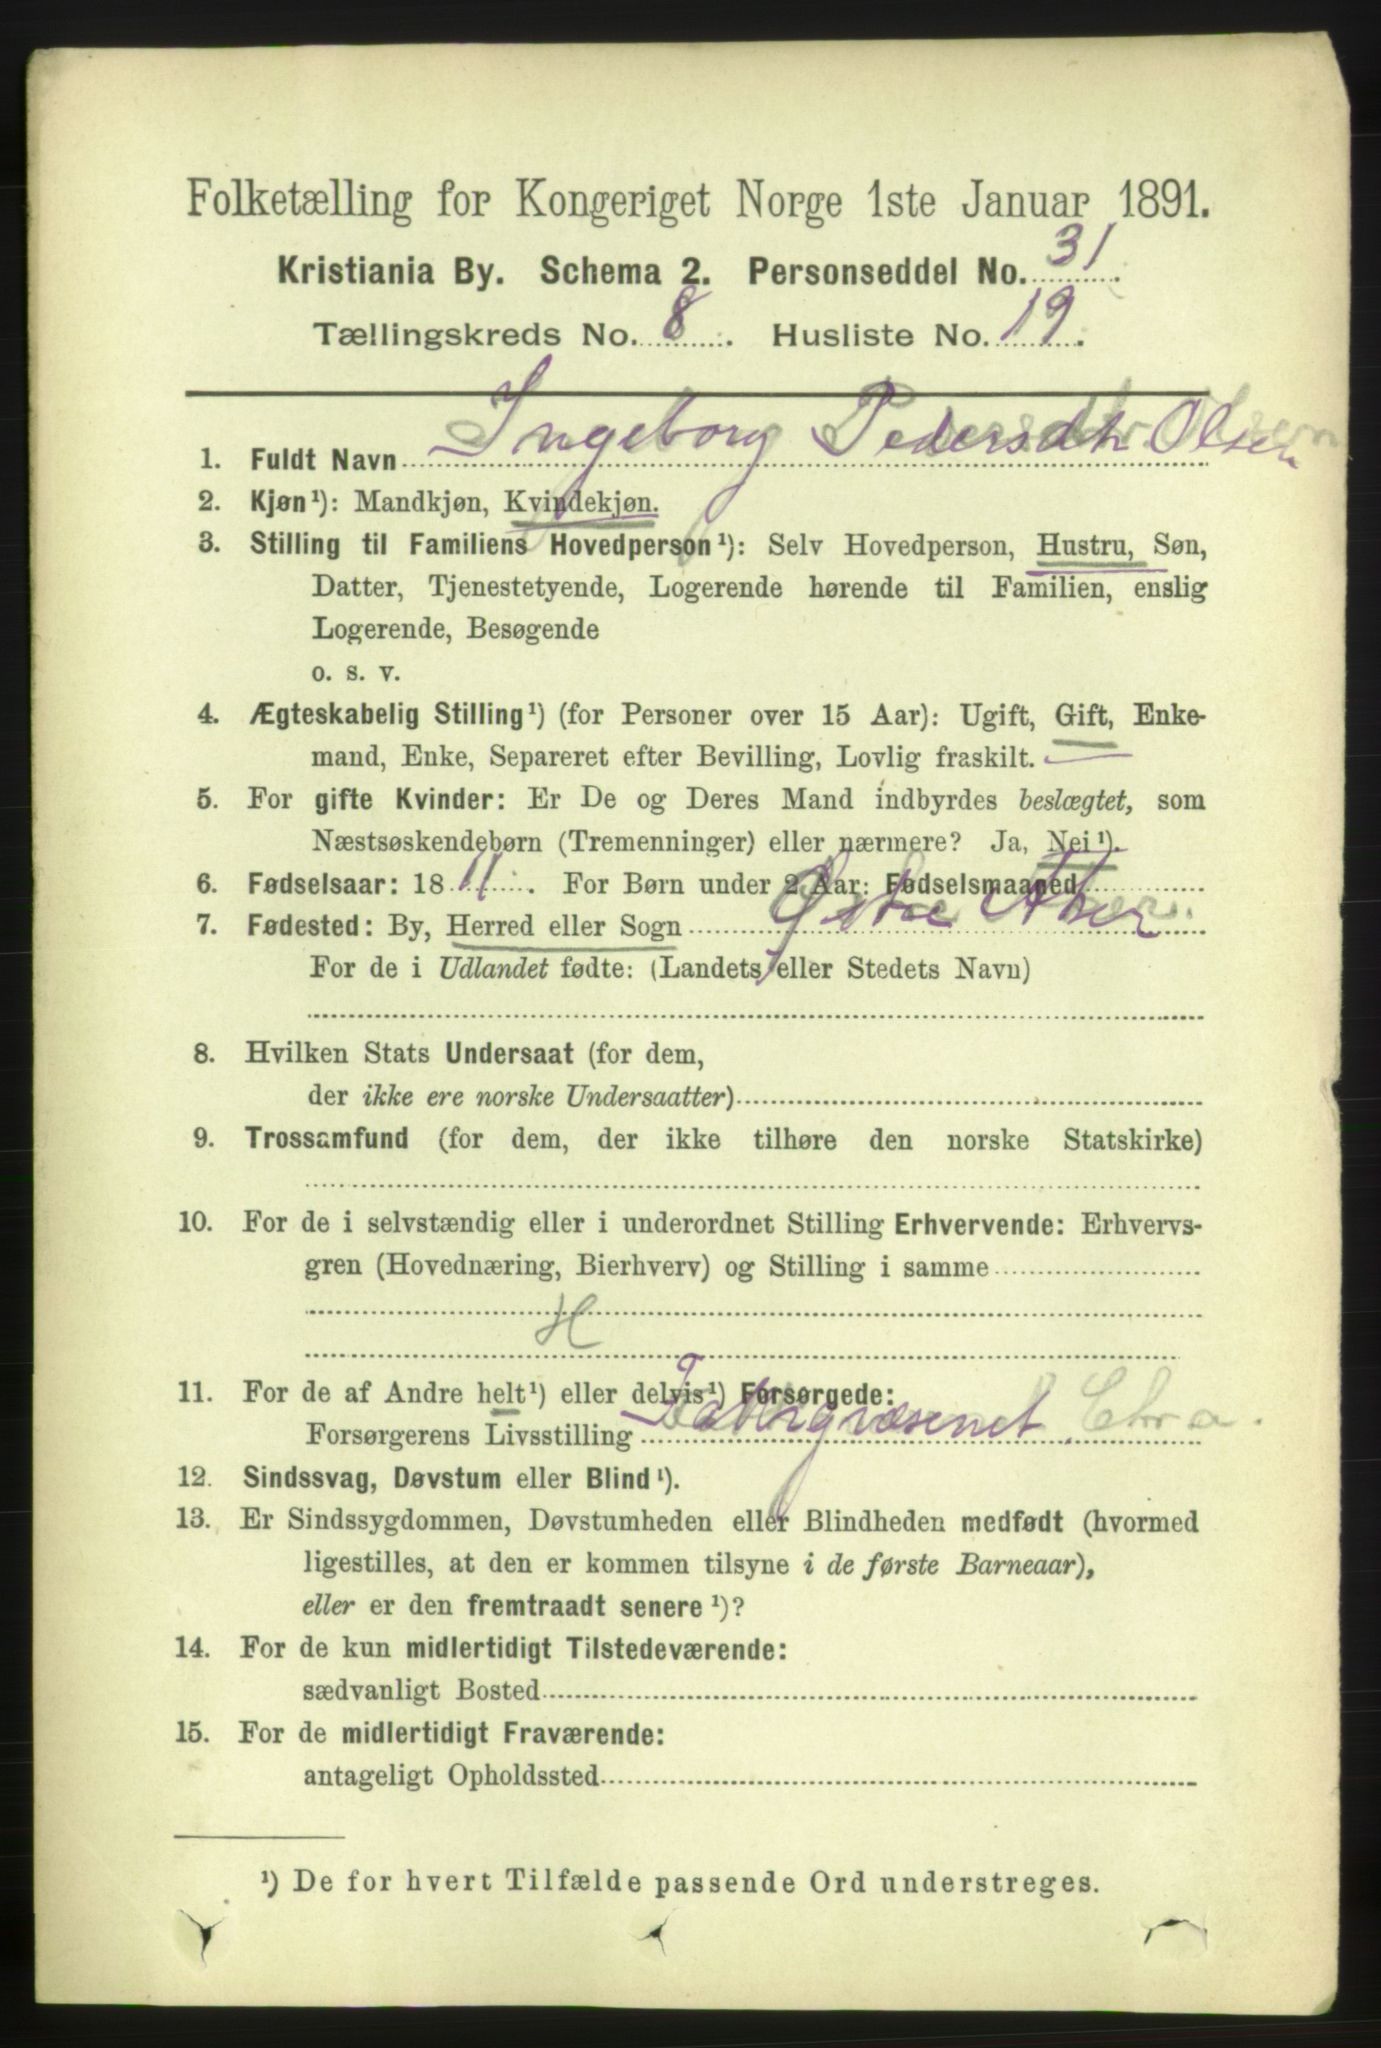 Folketælling for Kongeriget Norge 1ste Januar 1891.
Kristiania By. Schema 2. Personseddel No. 31.
Tællingskreds No. 8. Husliste No. 19.
1. Fuldt Navn Ingeborg Pedersdtr Olsen
2. Kjøn¹): Mandkjøn, Kvindekjøn.
3. Stilling til Familiens Hovedperson¹): Selv Hovedperson, Hustru, Søn,
Datter, Tjenestetyende, Logerende hørende til Familien, enslig
Logerende, Besøgende
o. s. v.
4. Ægteskabelig Stilling¹) (for Personer over 15 Aar): Ugift, Gift, Enke-
mand, Enke, Separeret efter Bevilling, Lovlig fraskilt.
5. For gifte Kvinder: Er De og Deres Mand indbyrdes beslægtet, som
Næstsøskendebørn (Tremenninger) eller nærmere? Ja, Nei¹).
6. Fødselsaar: 1811. For Børn under 2 Aar: Fødselsmaaned
7. Fødested: By, Herred eller Sogn Østre Aker
For de i Udlandet fødte: (Landets eller Stedets Navn)
8. Hvilken Stats Undersaat (for dem,
der ikke ere norske Undersaatter)
9. Trossamfund (for dem, der ikke tilhøre den norske Statskirke)
10. For de i selvstændig eller i underordnet Stilling Erhvervende: Erhvervs-
gren (Hovednæring, Bierhverv) og Stilling i samme
H
11. For de af Andre helt¹) eller delvis¹) Forsørgede:
Forsørgerens Livsstilling Fattigvæsenet. Chra.
12. Sindssvag, Døvstum eller Blind¹).
13. Er Sindssygdommen, Døvstumheden eller Blindheden medfødt (hvormed
ligestilles, at den er kommen tilsyne i de første Barneaar),
eller er den fremtraadt senere¹)?
14. For de kun midlertidigt Tilstedeværende:
sædvanligt Bosted
15. For de midlertidigt Fraværende:
antageligt Opholdssted
¹) De for hvert Tilfælde passende Ord understreges.